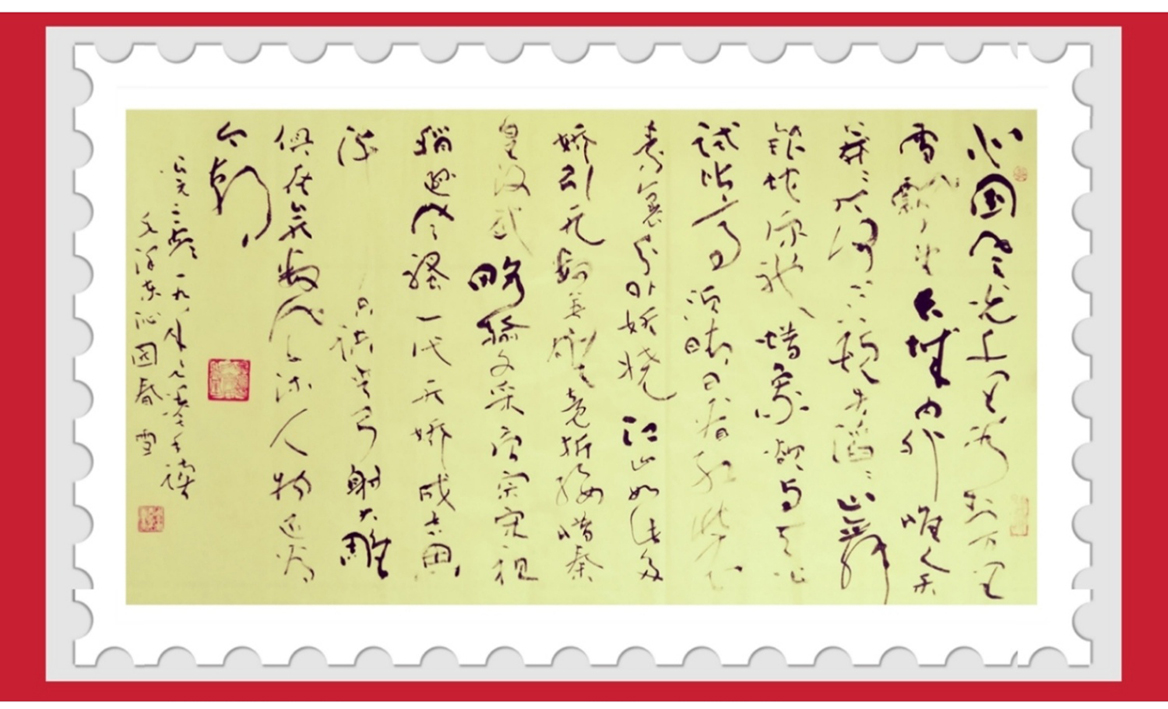 北国风光千里冰封万里
雪飘望长城内外唯余
莽莽大河上下顿失滔滔山舞
银蛇原驰蜡象欲与天公
试比高须晴日看红装
素裹分外妖娆江山如此多
娇引无数英雄竞折腰惜秦
皇汉武略输文采唐宗宋祖
稍逊风骚一代天娇成吉思
汗只识弯弓射大雕
俱往矣数风流人物还看
今朝
公元二零一九年
毛泽东沁园春雪